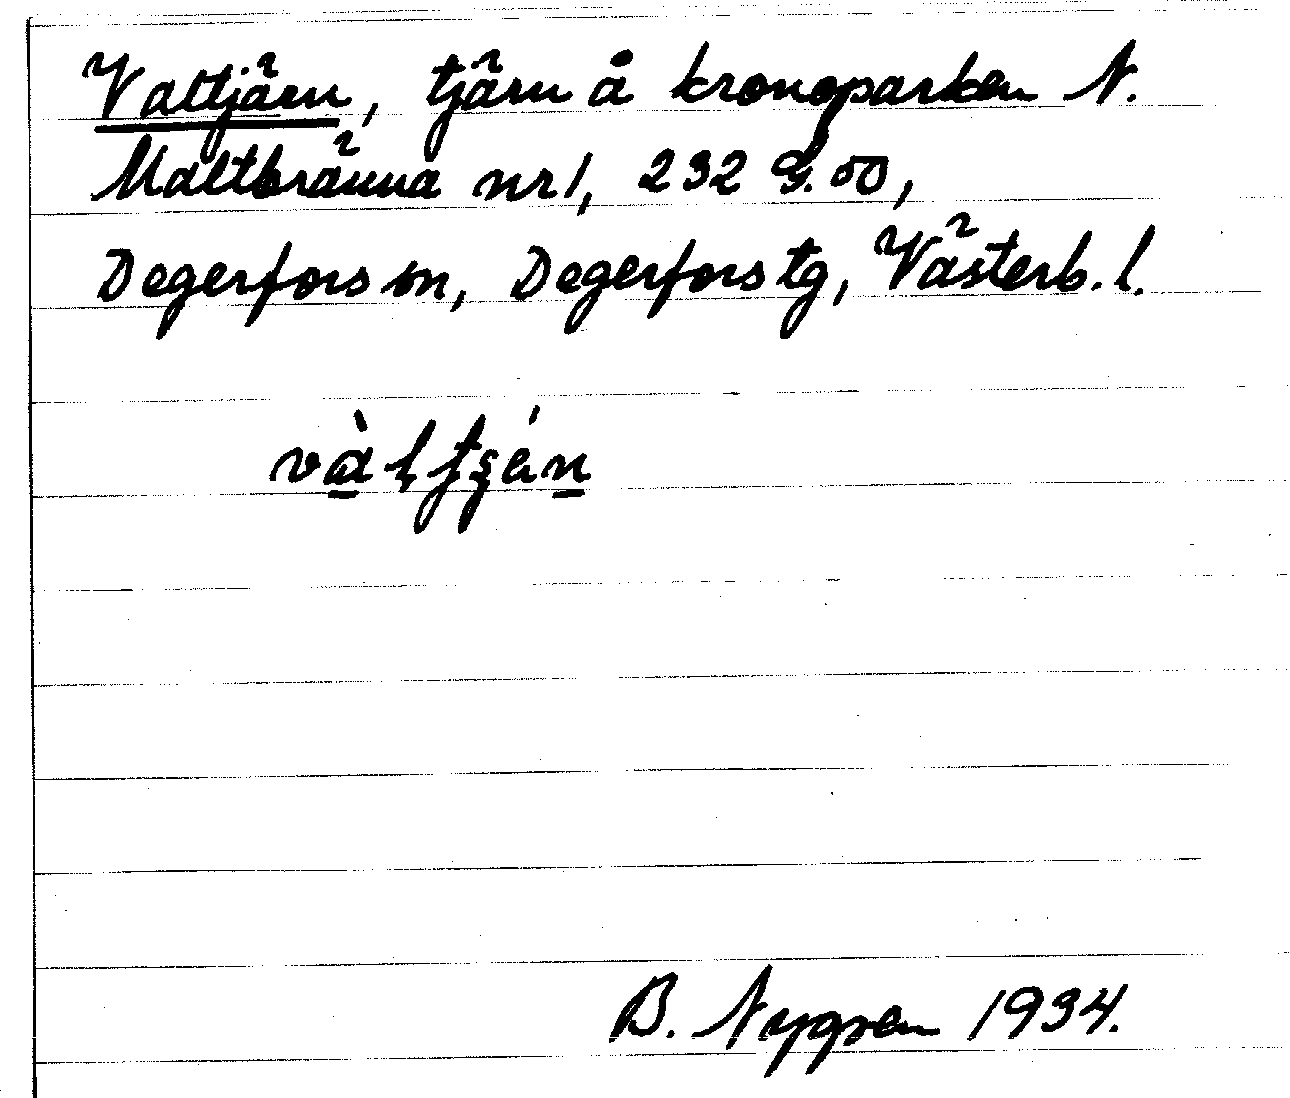 Valtjärn, tjärn å kronoparken N.
Maltbränna nr 1, 232 G. 00,
Degerfors sn, Degerfors tg, Västerb. l.
B. Nygren 1934.